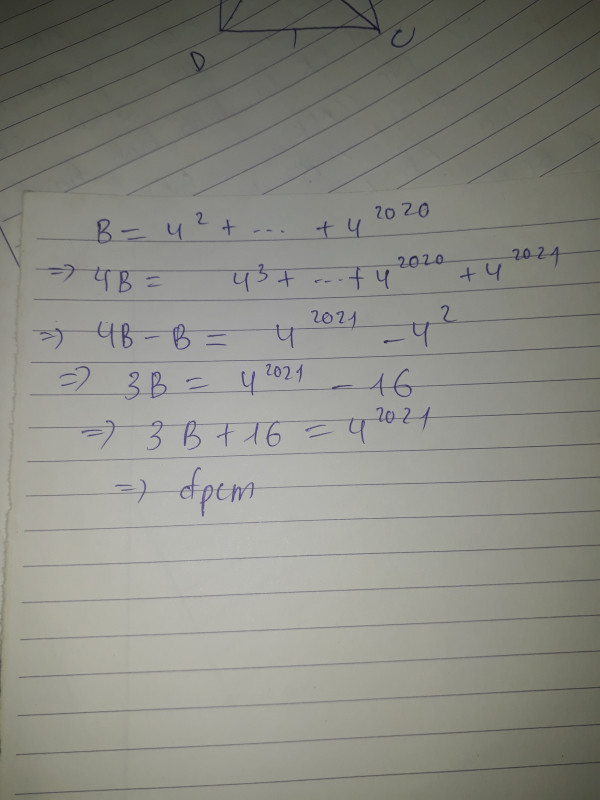 D C
B = 4² + ... + 4²⁰²⁰
=> 4B = 4³ + ... + 4²⁰²⁰ + 4²⁰²¹
=> 4B - B = 4²⁰²¹ - 4²
=> 3B = 4²⁰²¹ - 16
=> 3B + 16 = 4²⁰²¹
=> đpcm